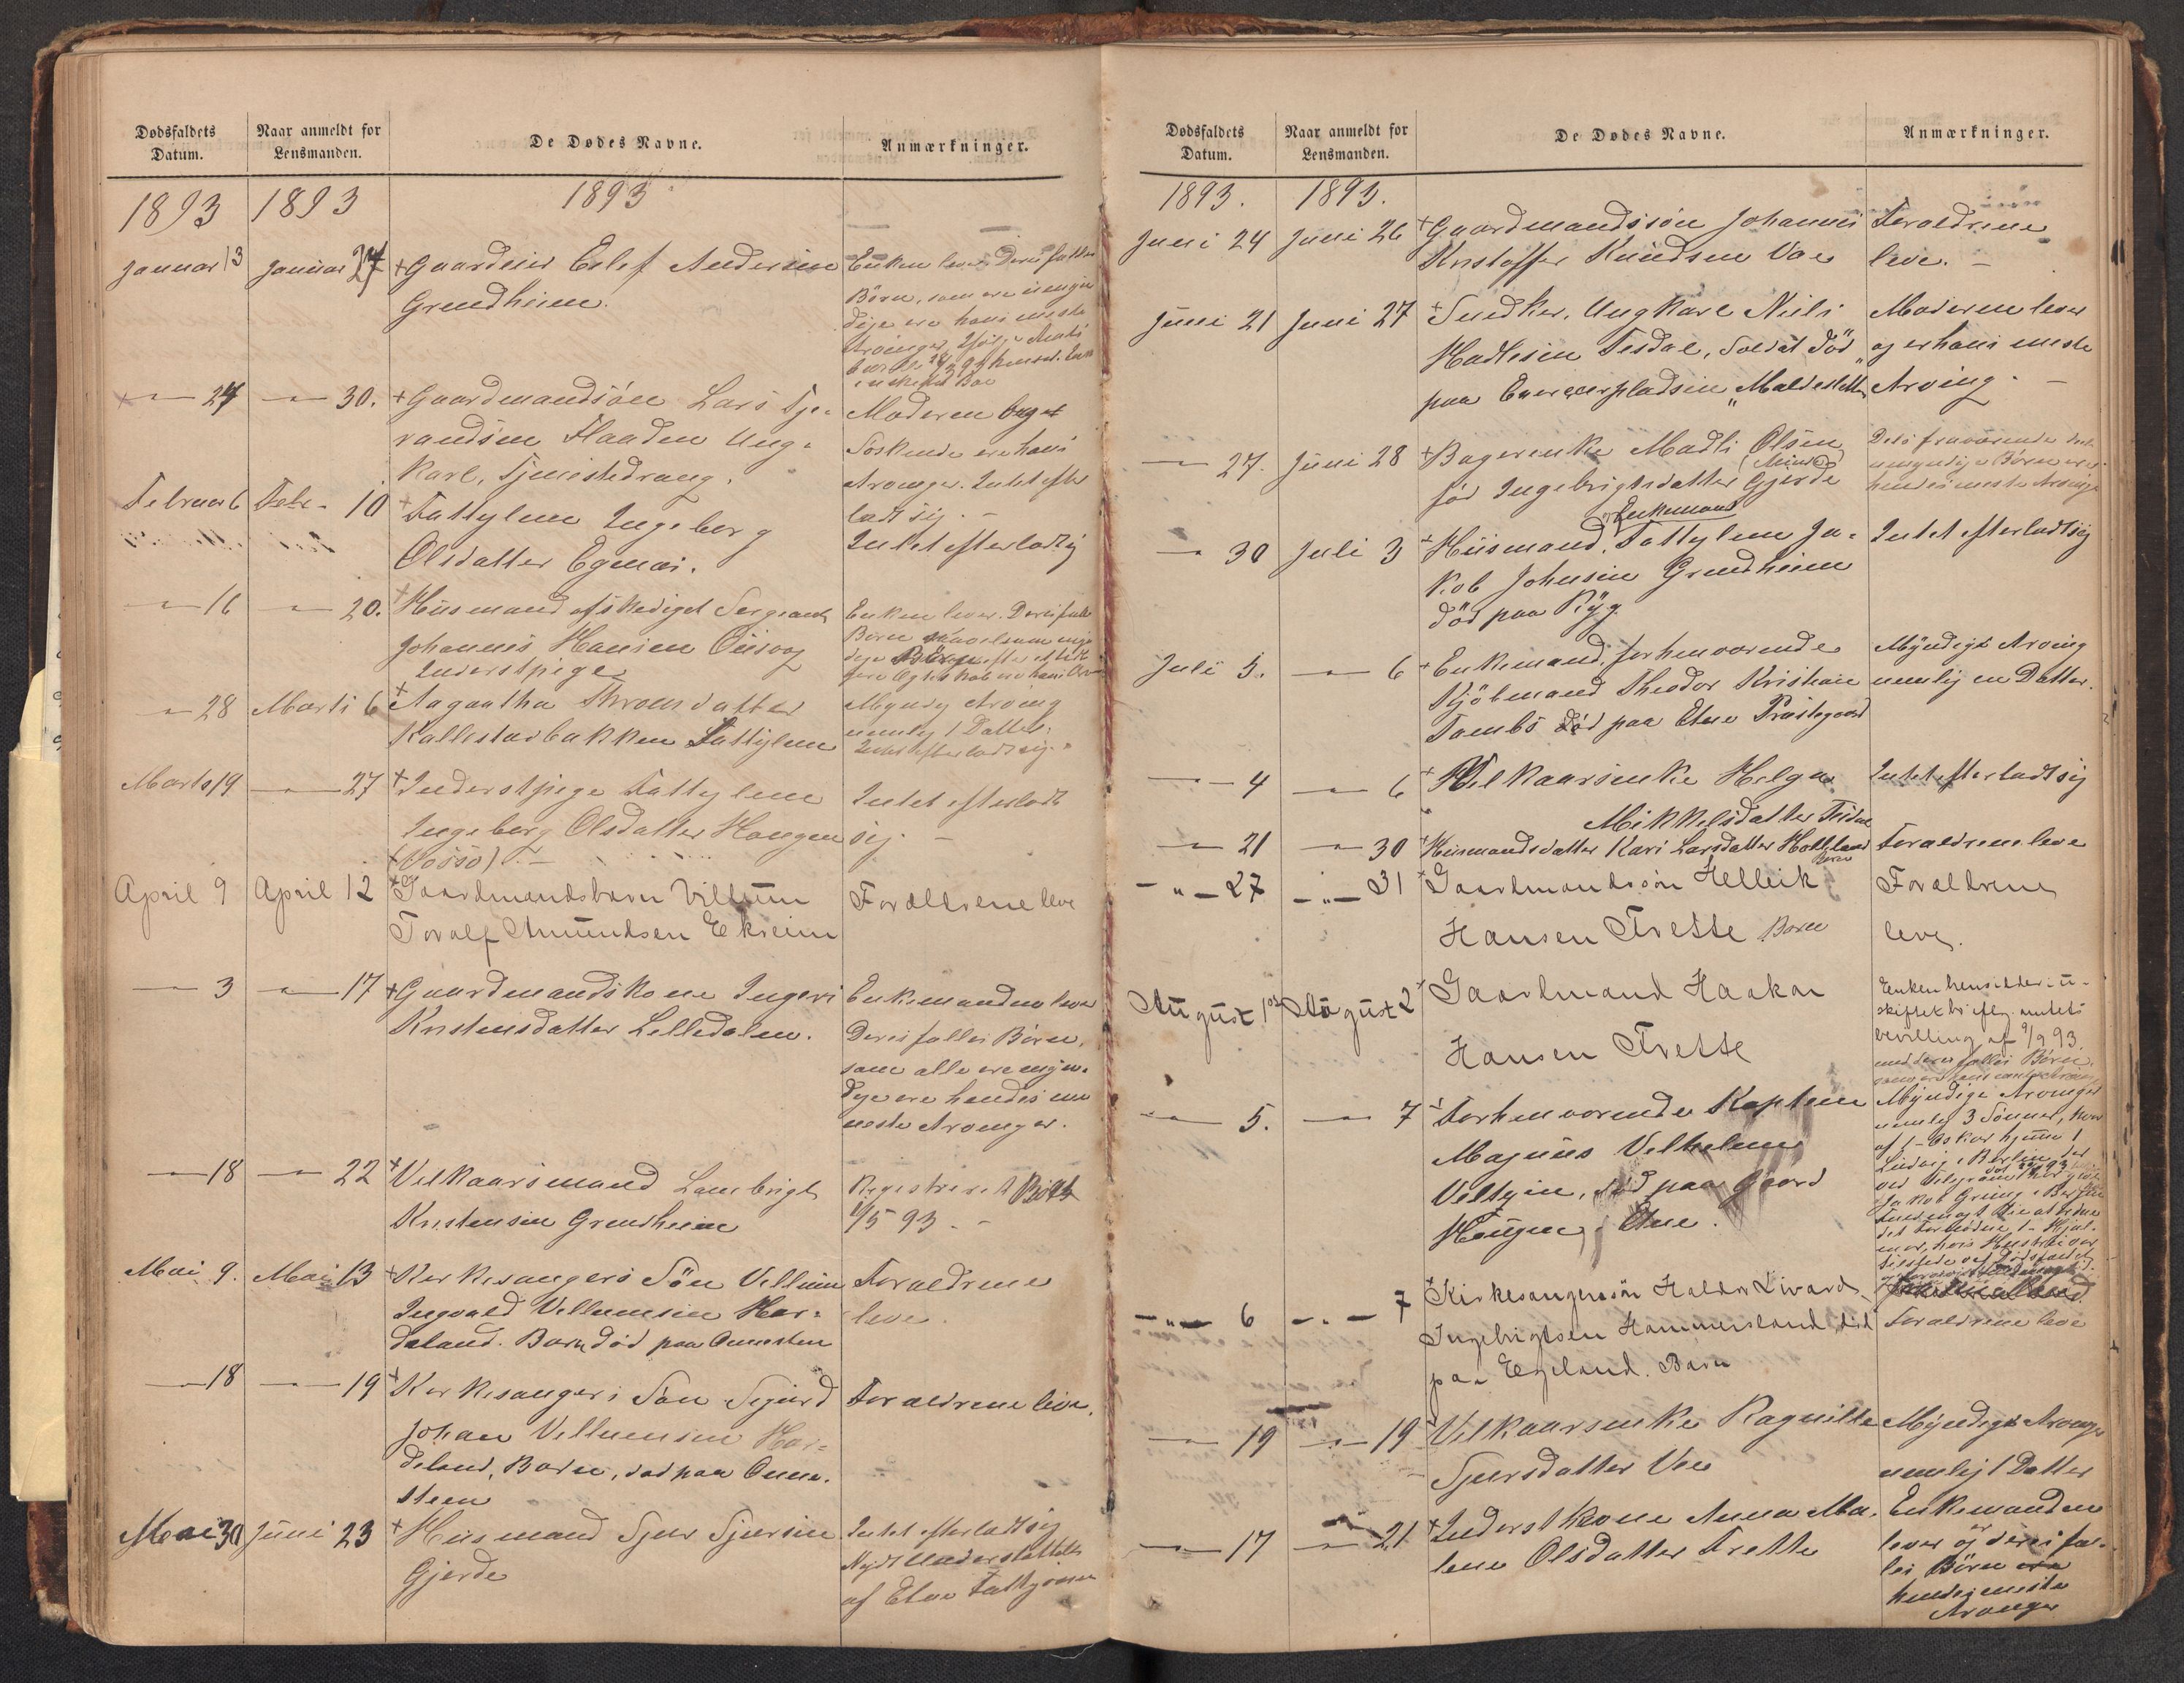 Dødsfaldets Datum.
Naar anmeldt for Lensmanden.
De Dødes Navne.
Anmærkninger.
1893 1893 1893
Januar 13 Januar 24 + Gaardeier Eelef Andersen
Grendheim.
Enken lever. Deres fælles
Børn, som ere umyn
dige ere hans neste
Arvinger
uskiftet Bo
— 24 — 30. + Gaardmandsøn Lars Tje-
randsen Flaaden Ung-
karl, Tjenestedreng.
Moderen
Søskende ere hans
Arvinger. Intet efter
ladt sig. —
Februar 6 Febr. 10 + Fattiglem Ingeborg
Olsdatter Egenæs.
Intet efterladt sig
— 16 — 20. + Huusmand afskediget Sergeant
Johannes Hansen
Inderstpige
Enken lever. Deres fælles
Børn
— 28 Marts 6 + Aagaatha
Kallestadbakken Fattiglem
Myndig Arving
nemlig 1 Datter.
Intet efterladt sig.
Marts 19 — 27 + Inderstpige Fattiglem
Ingeborg Olsdatter Haugen
(Vosso). —
Intet efterladt
sig. —
April 9 April 12 + Gaardmandsbarn Villum
Toralf Amundsen Ekreim
Forældrene leve
— 3 — 17 + Gaardmandskone Ingeri
Kristensdatter Lilledalen.
Enkemanden lever
Deres fælles Børn,
som alle ere myn-
dige ere hendes
neste Arvinger.
— 18 — 22 + Velkaarsmand Lambrigt
Kristensen Grendheim
Registreret
1/5 93. —
Mai 9. Mai 13 + Kirkesangers Søn Vellum
Ingvald Vellumsen Har-
deland. Barn, død paa Ønnesten
Forældrene
leve.
— 18 — 19 + Kirkesangers Søn Sigurd
Johan Vellumsen Har-
deland, Barn, død paa Ønne-
steen
Forældrene leve.
Mai 30 Juni 23 + Huusmand Sjur Sjursen
Gjerde
Intet efterladt sig
Nydt Understøttelse
af Etne Fattigvæsen
Dødsfaldets Datum.
Naar anmeldt for Lensmanden.
De Dødes Navne.
Anmærkninger.
1893. 1893.
Juni 24 Juni 26 + Gaardmandssøn Johannes
Kristoffer Knudsen Vae
Forældrene
leve. —
Juni 21 Juni 27 + Snedker, Ungkarl Nils
Hadlesen Tesdal, Soldat død
paa Exerceerpladsen „Maldesletten"
Moderen lever
og er hans neste
Arving. —
— 27. Juni 28 + Bagerenke Madli Olsen
fød Ingebrigtsdatter Gjerde
Børn ere
hendes neste Arvinge
— 30 Juli 3 + Huusmand, og Enkemand Fattiglem Ja-
kob Johnsen Grendheim
død paa Ryg.
Intet efterladt sig
Juli 5. — 6 + Enkemand, forhenværende
Kjøbmand Theodor Kristian
Tambs død paa Etne Præstegaard
Myndig Arving
nemlig en Datter.
— 4 — 6 + Velkaarsenke Helga
Mikkelsdatter Tesdal
Intet efterladt sig
— 21 — 30 + Huusmandsdatter Kari Larsdatter Houland
Barn
Forældrene leve
— " — 27 — " — 31 + Gaardmandssøn Helleik
Hansen Trette Barn
Forældrene
leve.
August 1 August 2 + Gaardmand Haakon
Hansen Trette
Enken hensidder i u-
skiftet bo eflg. amtets
bevilling af 9/9 93.
med deres fælles Børn
— 5. — 7 + Forhenværende Kaptein
Magnus Velhelm
Veltzin, død paa Gaard
Haugen, i Etne.
Myndige Arvinger
nemlig 3 Sønner, hvor
af 1 Oskar hjemme 1
Ludvig i Berlin
— " — 6 — " — 7 + Kirkesangersøn Haldor Sivard
Ingebrigtsen Hammersland, død
paa Egeland. Barn
Forældrene leve
— 19 — 19 Velkaarsenke Ragnilde
Sjursdatter Vae
Myndige Arvinge
nemlig 1 Datter
— 17 — 21 + Inderstkone Anna Ma-
lene Olsdatter Trette
Enkemanden
lever og deres fæl-
les Børn ere
hendes neste
Arvinger